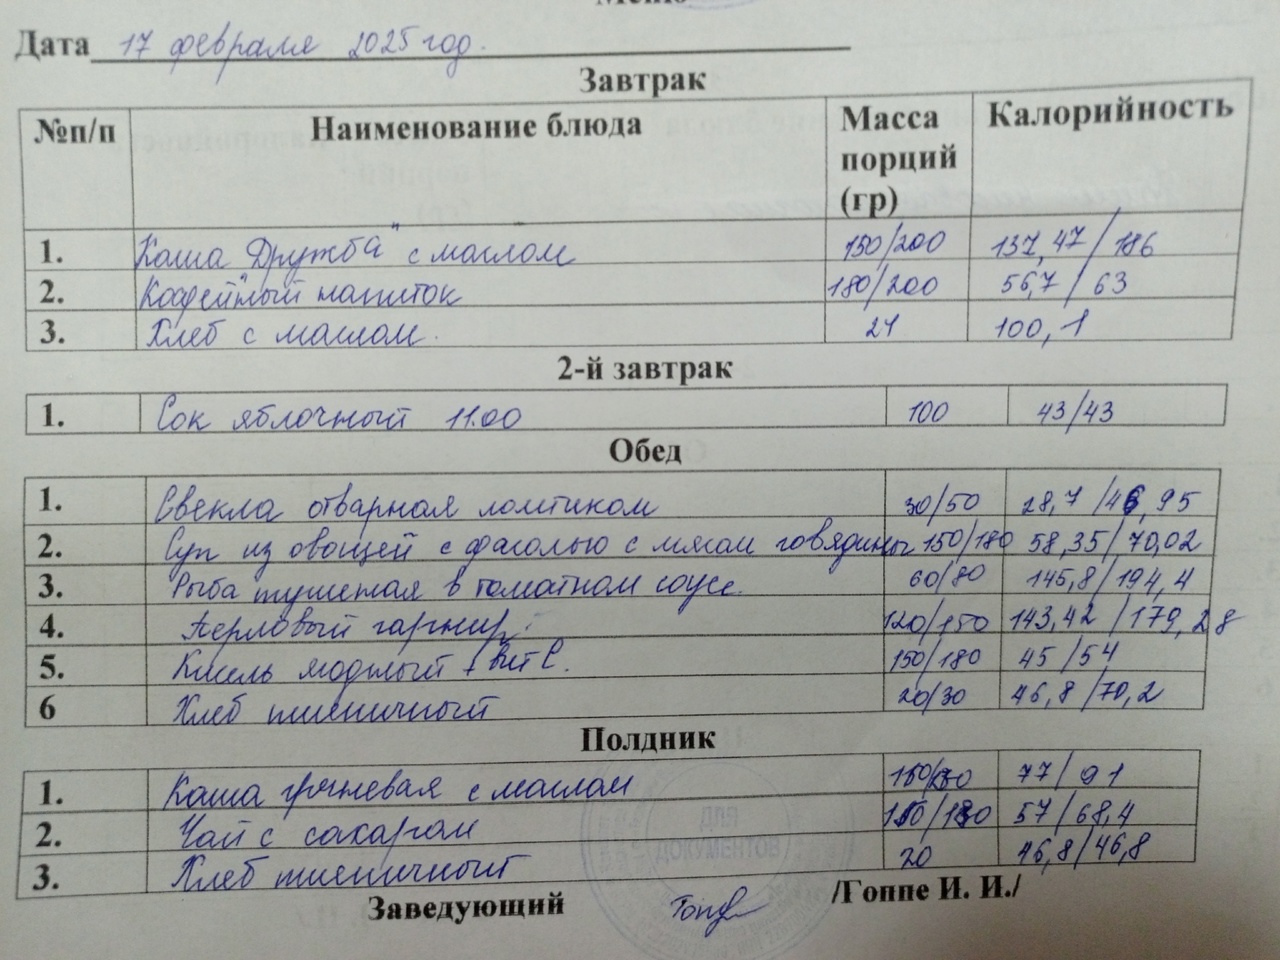 Меню
Дата 17 февраля 2025 год.
Завтрак
№п/п Наименование блюда Масса порций (гр) Калорийность
1. Каша "Дружба" с маслом 150/200 137,47/186
2. Кофейный напиток 180/200 56,7/63
3. Хлеб с маслом. 24 100,1
2-й завтрак
1. Сок яблочный 11.00 100 43/43
Обед
1. Свекла отварная ломтиком 30/50 28,7/46,95
2. Суп из овощей с фасолью с мясом говядины 150/180 58,35/70,02
3. Рыба тушеная в томатном соусе. 60/80 145,8/194,4
4. Перловый гарнир. 120/150 143,42/179,28
5. Кисель модный + вит С. 150/180 45/54
6 Хлеб пшеничный 20/30 46,8/70,2
Полдник
1. Каша гречневая с маслом 77/91
2. Чай с сахаром 57/68,4
3. Хлеб пшеничный 20 46,8/46,8
ДЛЯ ДОКУМЕНТОВ
Заведующий /Гоппе И. И./